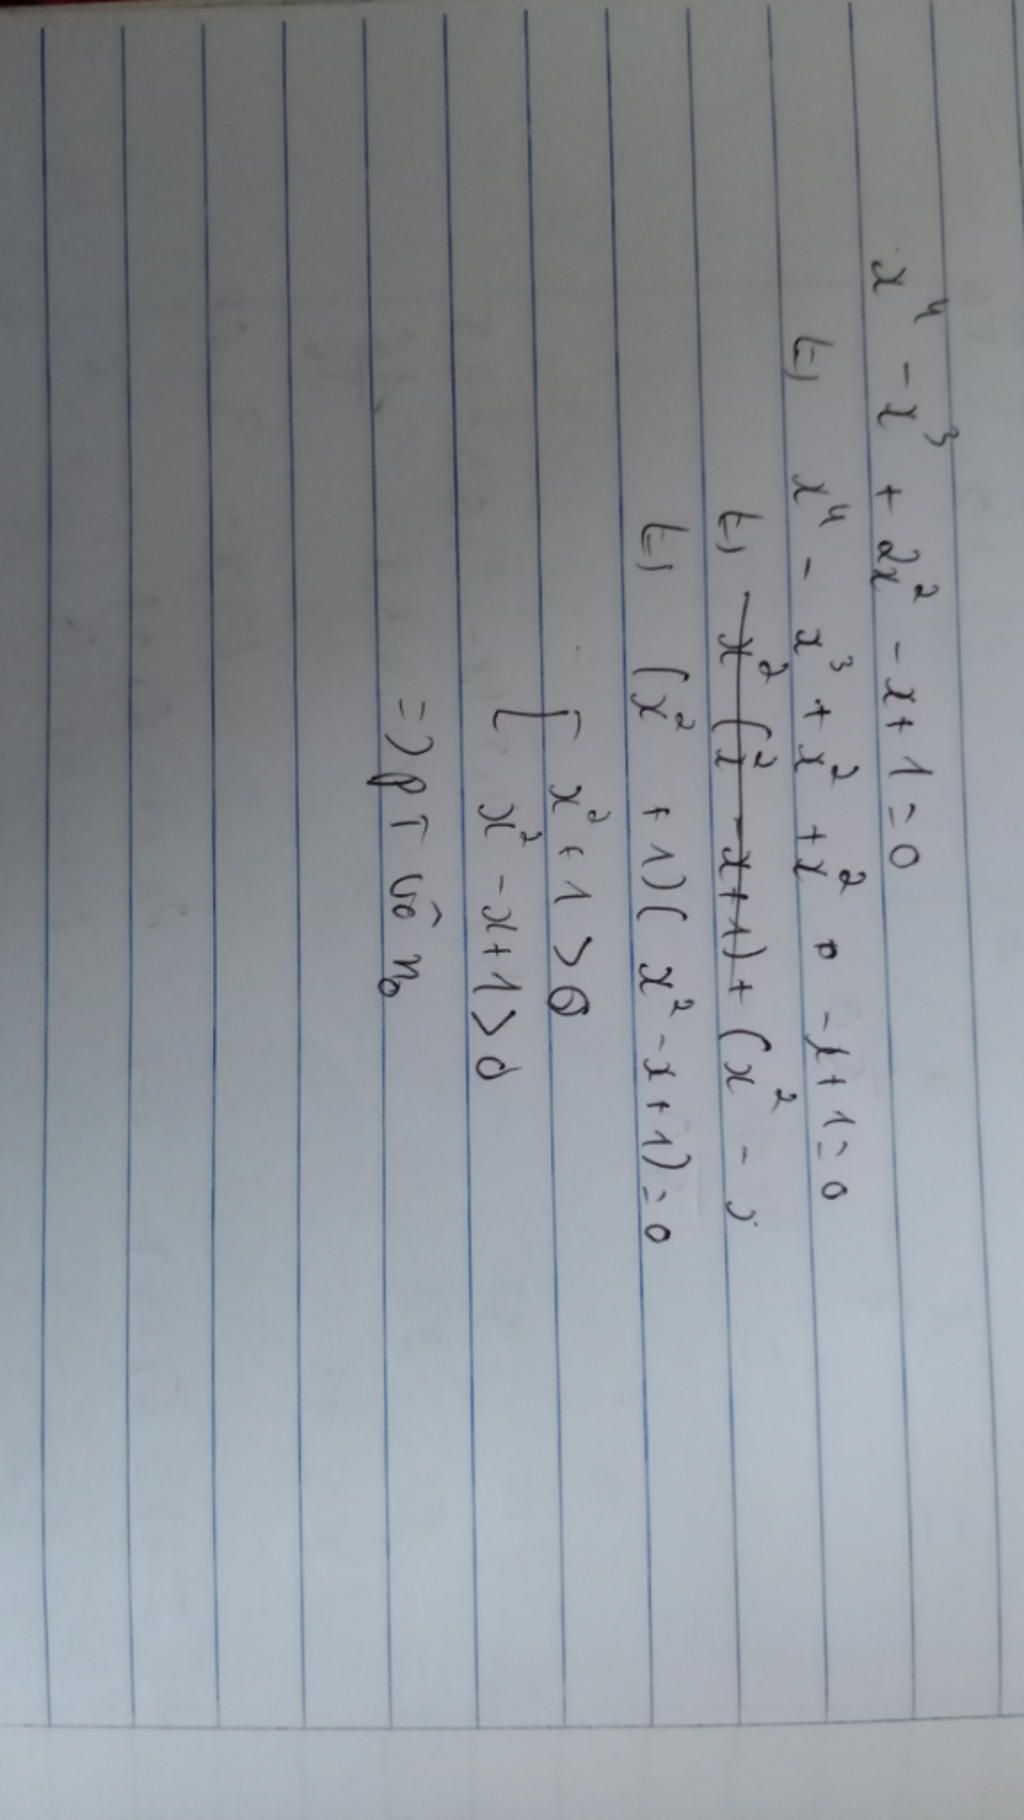 x⁴ - x³ + 2x² - x + 1 = 0
⇔ x⁴ - x³ + x² + x² - x + 1 = 0
⇔ x² (x² - x + 1) + (x² -
⇔ (x² + 1)( x² - x + 1) = 0
[ x² + 1 > 0
x² - x + 1 > 0
=> PT vô n₀